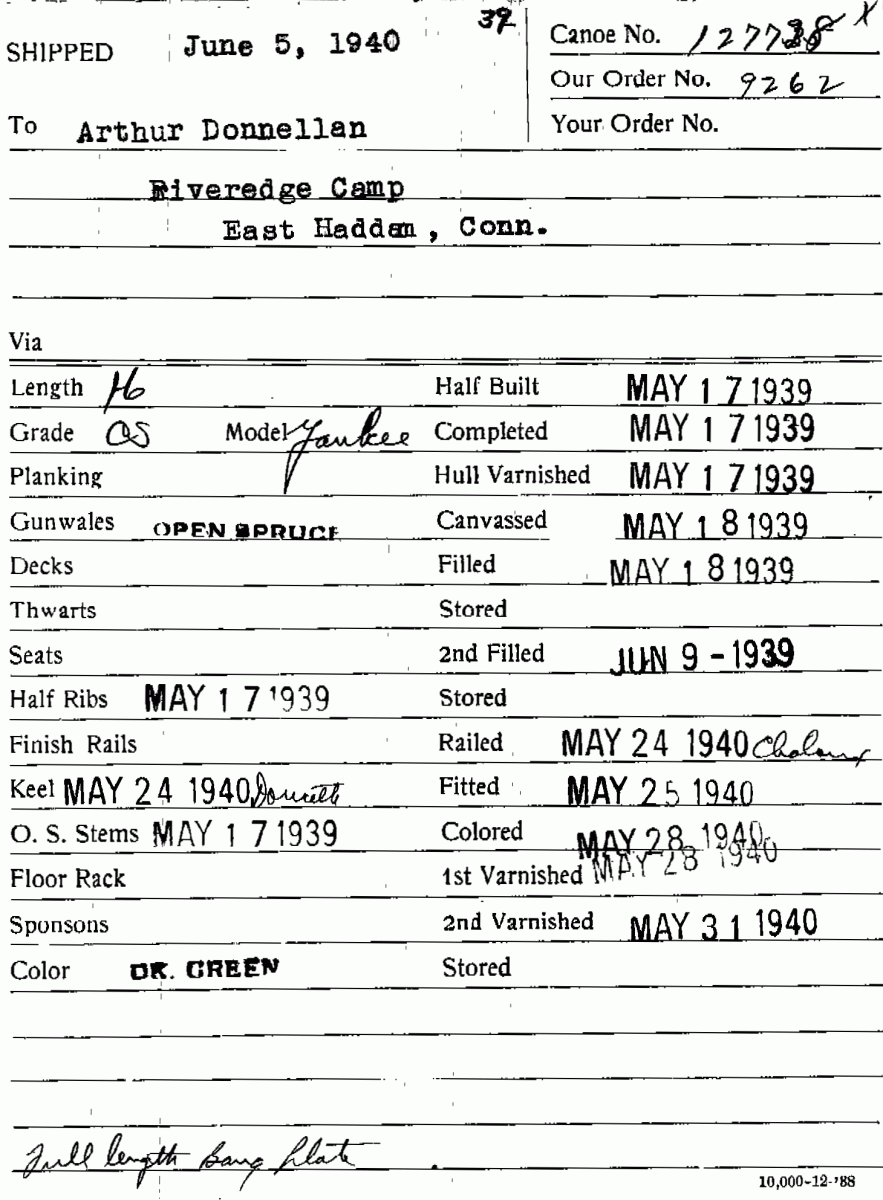 39
SHIPPED June 5, 1940 Canoe No. X
Our Order No. 9262
To Arthur Donnellan Your Order No.
Riveredge Camp
East Haddam, Conn.
Via
Length 16 Half Built MAY 17 1939
Grade OS Model Yankee Completed MAY 17 1939
Planking Hull Varnished MAY 17 1939
Gunwales OPEN SPRUCE Canvassed MAY 18 1939
Decks Filled MAY 18 1939
Thwarts Stored
Seats 2nd Filled JUN 9 - 1939
Half Ribs MAY 17 1939 Stored
Finish Rails Railed MAY 24 1940
Keel MAY 24 1940 Fitted MAY 25 1940
O. S. Stems MAY 17 1939 Colored MAY 28 1940
Floor Rack 1st Varnished MAY 28 1940
Sponsons 2nd Varnished MAY 31 1940
Color DK. GREEN Stored
Full length Bang Plate
10,000-12-'38